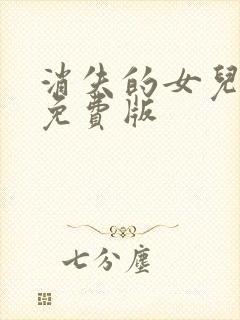 消失的女兒
免費版
七分塵